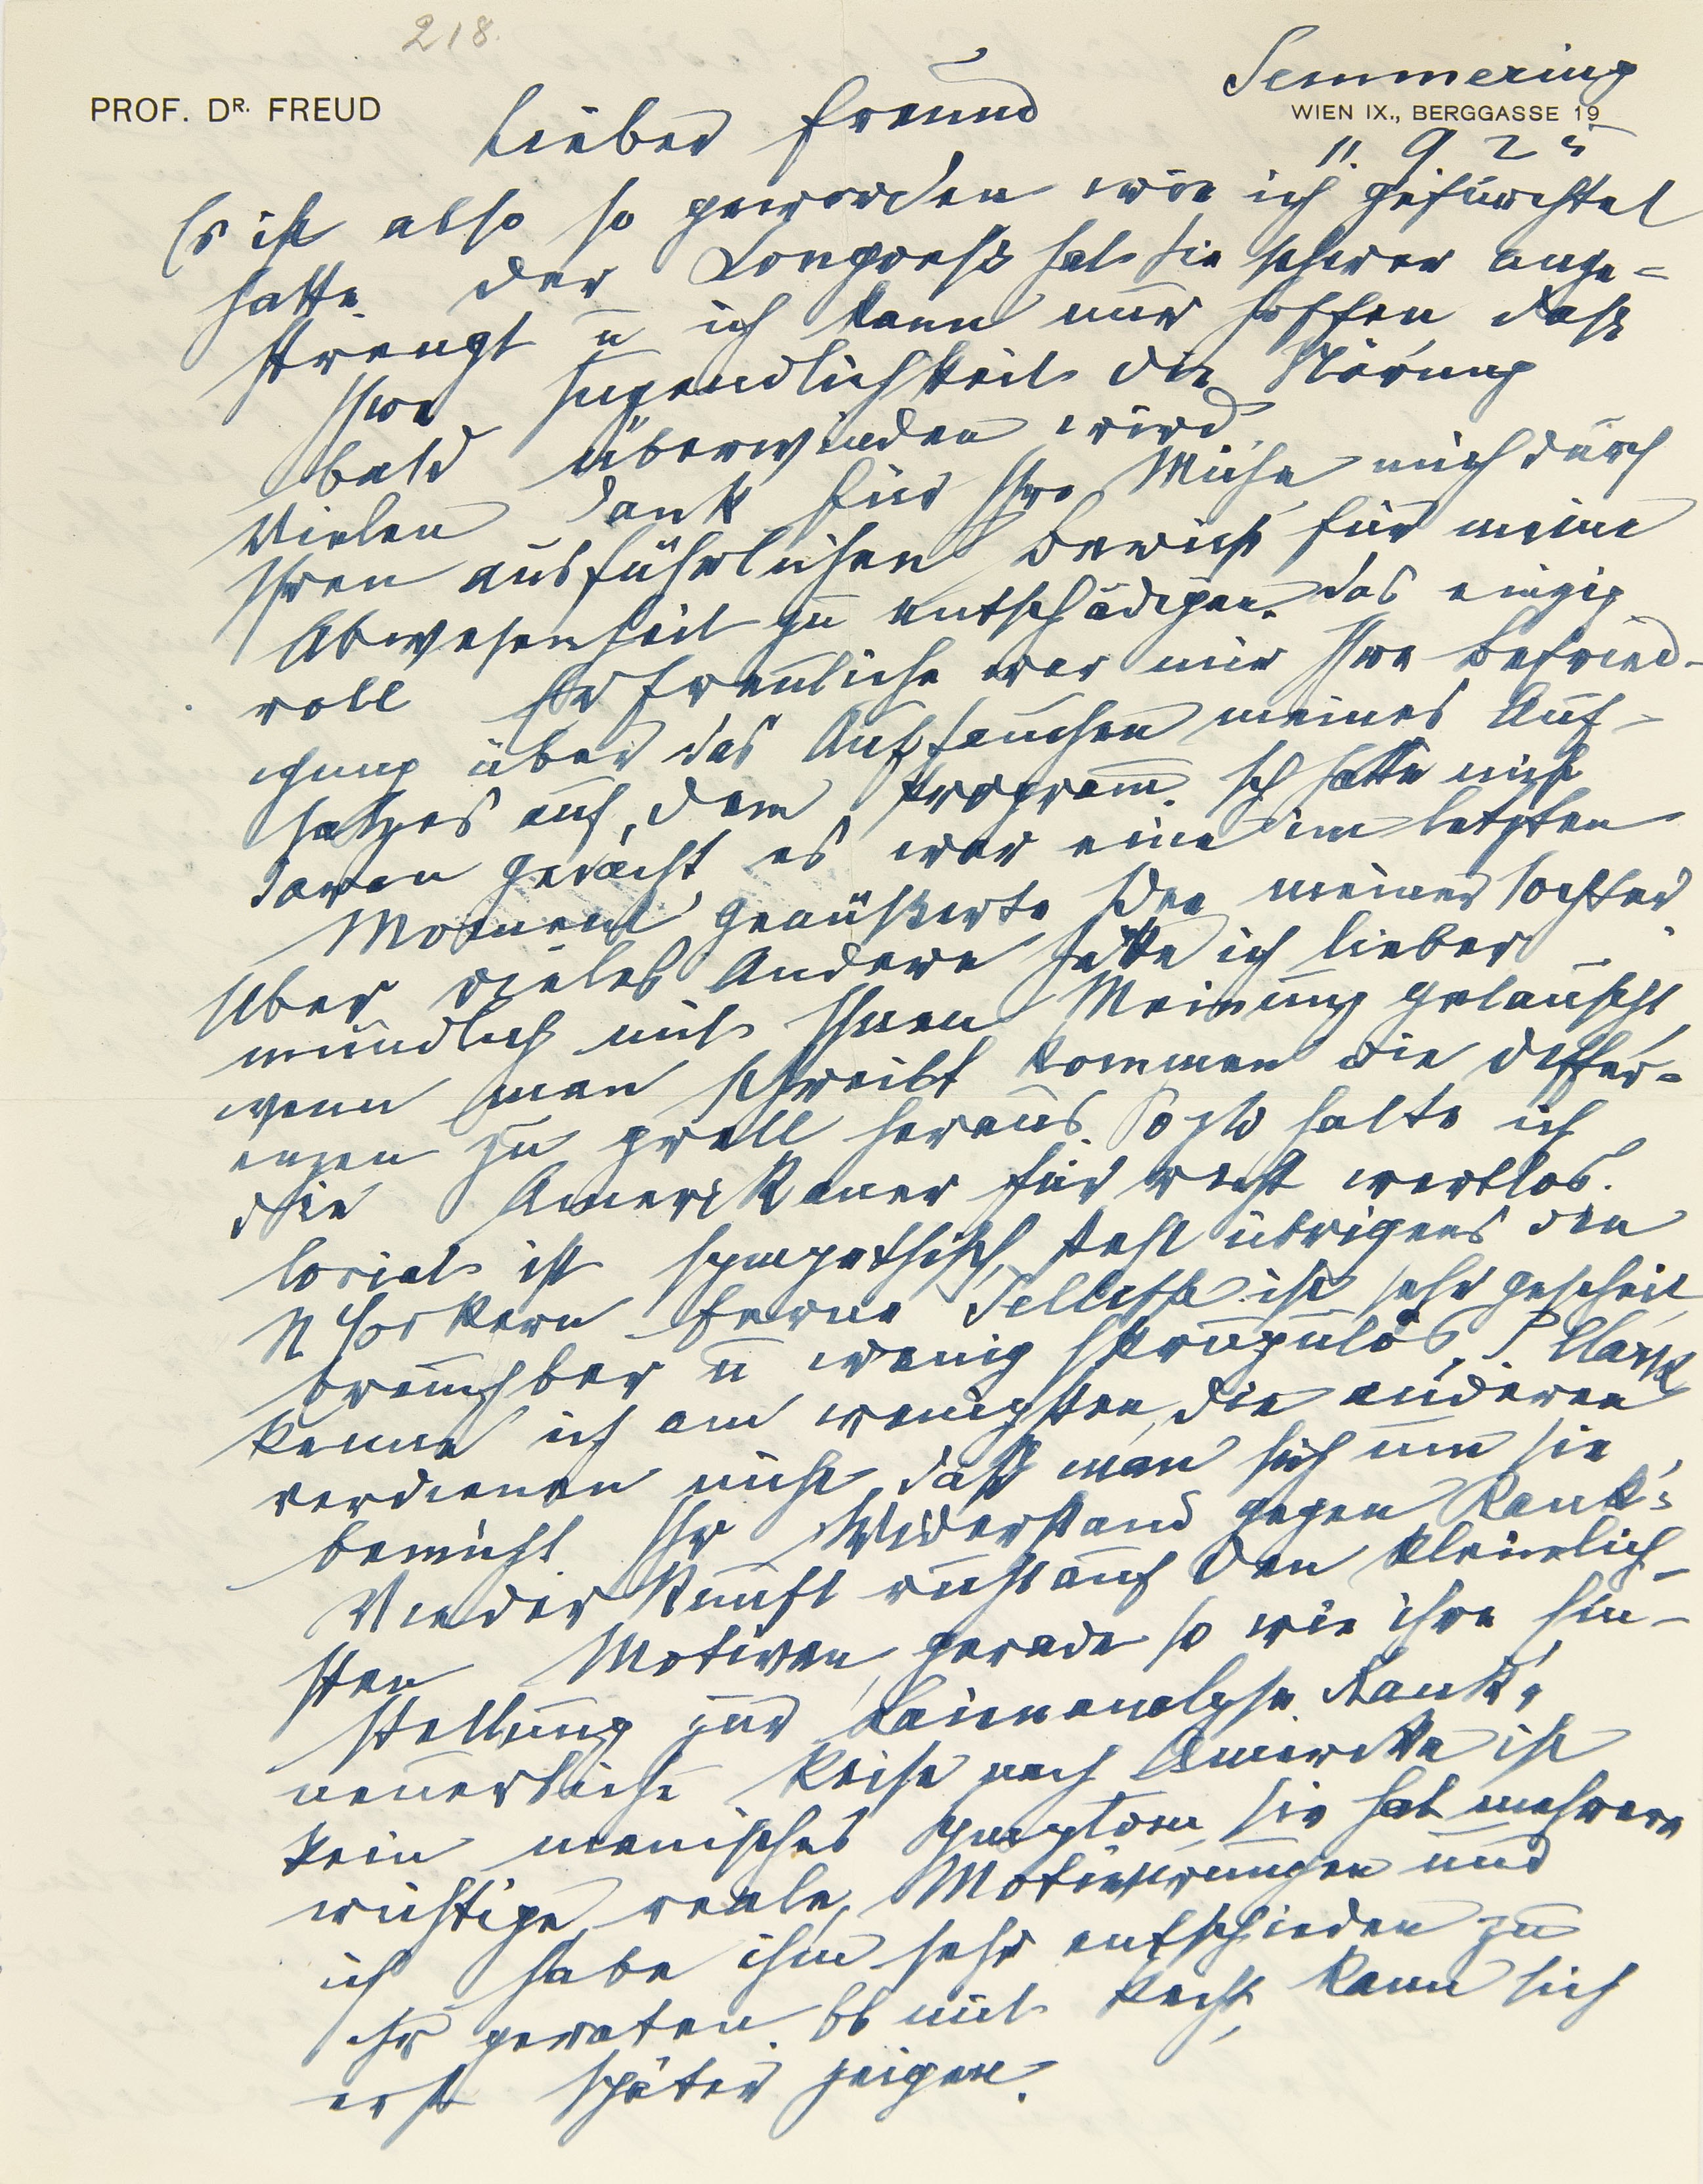 218.
PROF. DR. FREUD
Semmering
WIEN IX., BERGGASSE 19
11. 9. 25
Lieber Freund
Es ist also so geworden wie ich gefürchtet
hatte. Der Kongreß hat Sie schwer ange-
strengt u ich kann nur hoffen daß
Ihre Jugendlichkeit die Störung
bald überwinden wird.
Vielen Dank für Ihre Mühe, mich durch
Ihren ausführlichen Bericht für meine
Abwesenheit zu entschädigen. Das einzig
voll Erfreuliche war mir Ihre Befried-
igung über das Auftauchen meines Auf-
satzes auf dem Programm. Ich hatte nicht
daran gedacht, es war eine im letzten
Moment geäußerte Idee meiner Tochter.
Über vieles Andere hätte ich lieber
mündlich mit Ihnen Meinung getauscht,
wenn man schreibt kommen die Differ-
enzen zu grell heraus. So zb halte ich
die Amerikaner für recht wertlos.
Coriat ist sympathisch, steht übrigens den
N Yorkern ferne Jelliffe ist sehr gescheit
brauchbar u wenig skrupulös, P. Clark
kenne ich am wenigsten, die anderen
verdienen nicht, daß man sich um sie
bemüht. Ihr Widerstand gegen Rank's
Wiederkunft ruht auf den kleinlich-
sten Motiven, gerade so wie ihre Ein-
stellung zur Laienanalyse. Rank's
neuerliche Reise nach Amerika ist
kein manisches Symptom, sie hat mehrere
wichtige, reale, Motivierungen und
ich habe ihm sehr entschieden zu
ihr geraten. Ob mit Recht, kann sich
erst später zeigen.